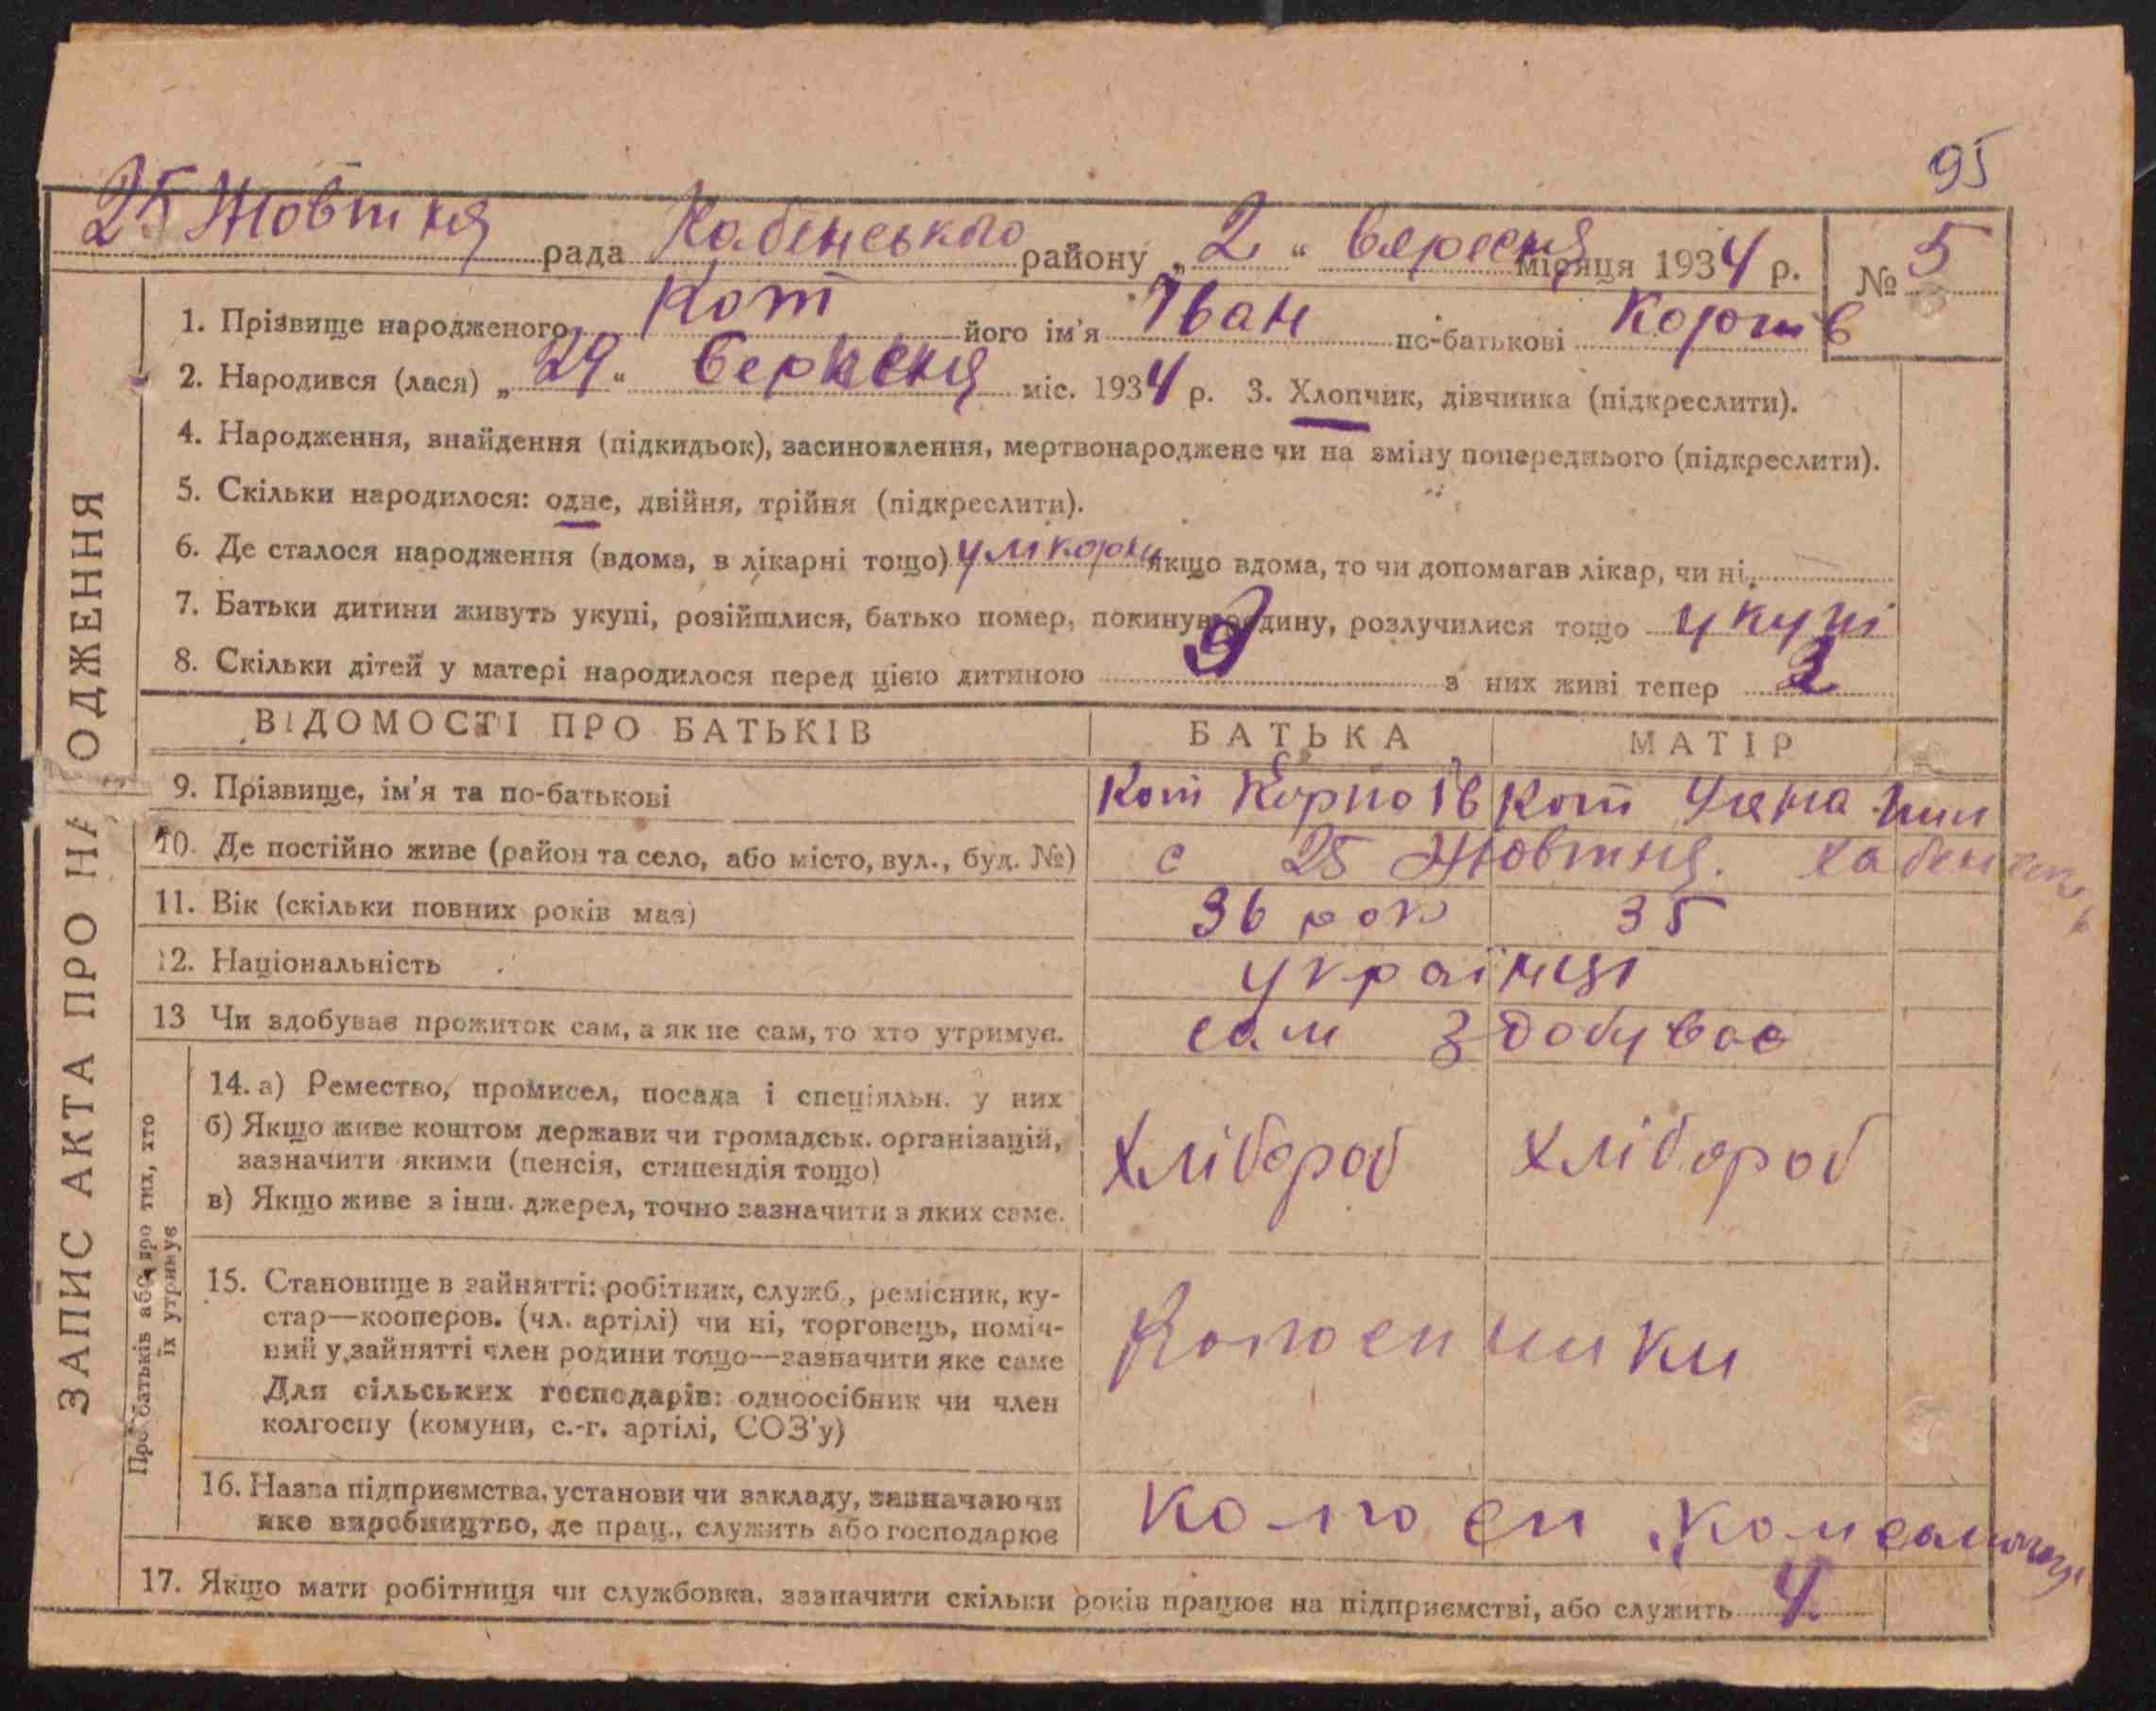 95
25 Жовтня рада Кабенського району „ 2 “ вересня місяця 1934 р. № 5
1. Прізвище народженого Кот його ім'я Іван по-батькові
2. Народився (лася) „ 29 “ міс. 1934 р. 3. Хлопчик, дівчинка (підкреслити).
4. Народження, знайдення (підкидьок), засиновлення, мертвонароджене чи на зміну попереднього (підкреслити).
5. Скільки народилося: одне, двійня, трійня (підкреслити).
6. Де сталося народження (вдома, в лікарні тощо) якщо вдома, то чи допомагав лікар, чи ні
7. Батьки дитини живуть укупі, розійшлися, батько помер, покинув родину, розлучилися тощо укупі
8. Скільки дітей у матері народилося перед цією дитиною з них живі тепер
ВІДОМОСТІ ПРО БАТЬКІВ БАТЬКА МАТІР
9. Прізвище, ім'я та по-батькові Кот Ів Кот
10. Де постійно живе (район та село, або місто, вул., буд. №) с 25 Жовтня.
11. Вік (скільки повних років має) 36 рок 35
12. Національність українці
13 Чи здобуває прожиток сам, а як не сам, то хто утримує. сам здобуває
14. а) Ремество, промисел, посада і спеціяльн. у них
б) Якщо живе коштом держави чи громадськ. організацій,
зазначити якими (пенсія, стипендія тощо) Хлібороб Хлібороб
в) Якщо живе з інш. джерел, точно зазначити з яких саме.
15. Становище в зайнятті: робітник, служб., ремісник, ку-
стар—кооперов. (чл. артілі) чи ні, торговець, поміч-
ний у зайнятті член родини тощо—зазначити яке саме
Для сільських господарів: одноосібник чи член
колгоспу (комуни, с.-г. артілі, СОЗ'у)
16. Назва підприємства, установи чи закладу, зазначаючи
яке виробництво, де прац., служить або господарює
17. Якщо мати робітниця чи службовка, зазначити скільки років працює на підприємстві, або служить 4
ЗАПИС АКТА ПРО НА ОДЖЕННЯ
Про батьків або про тих, хто
їх утримує